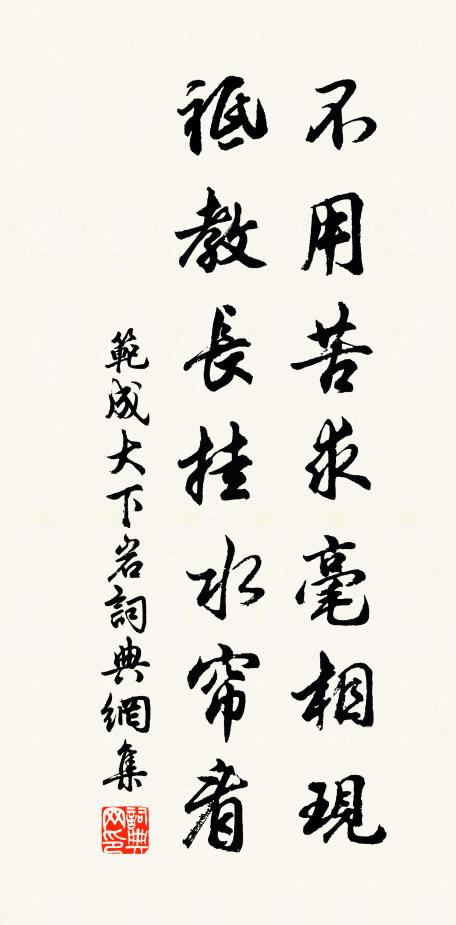 不用苦求毫相現
祗教長挂水帘看
範成大下岩詞典網集
詞典网印